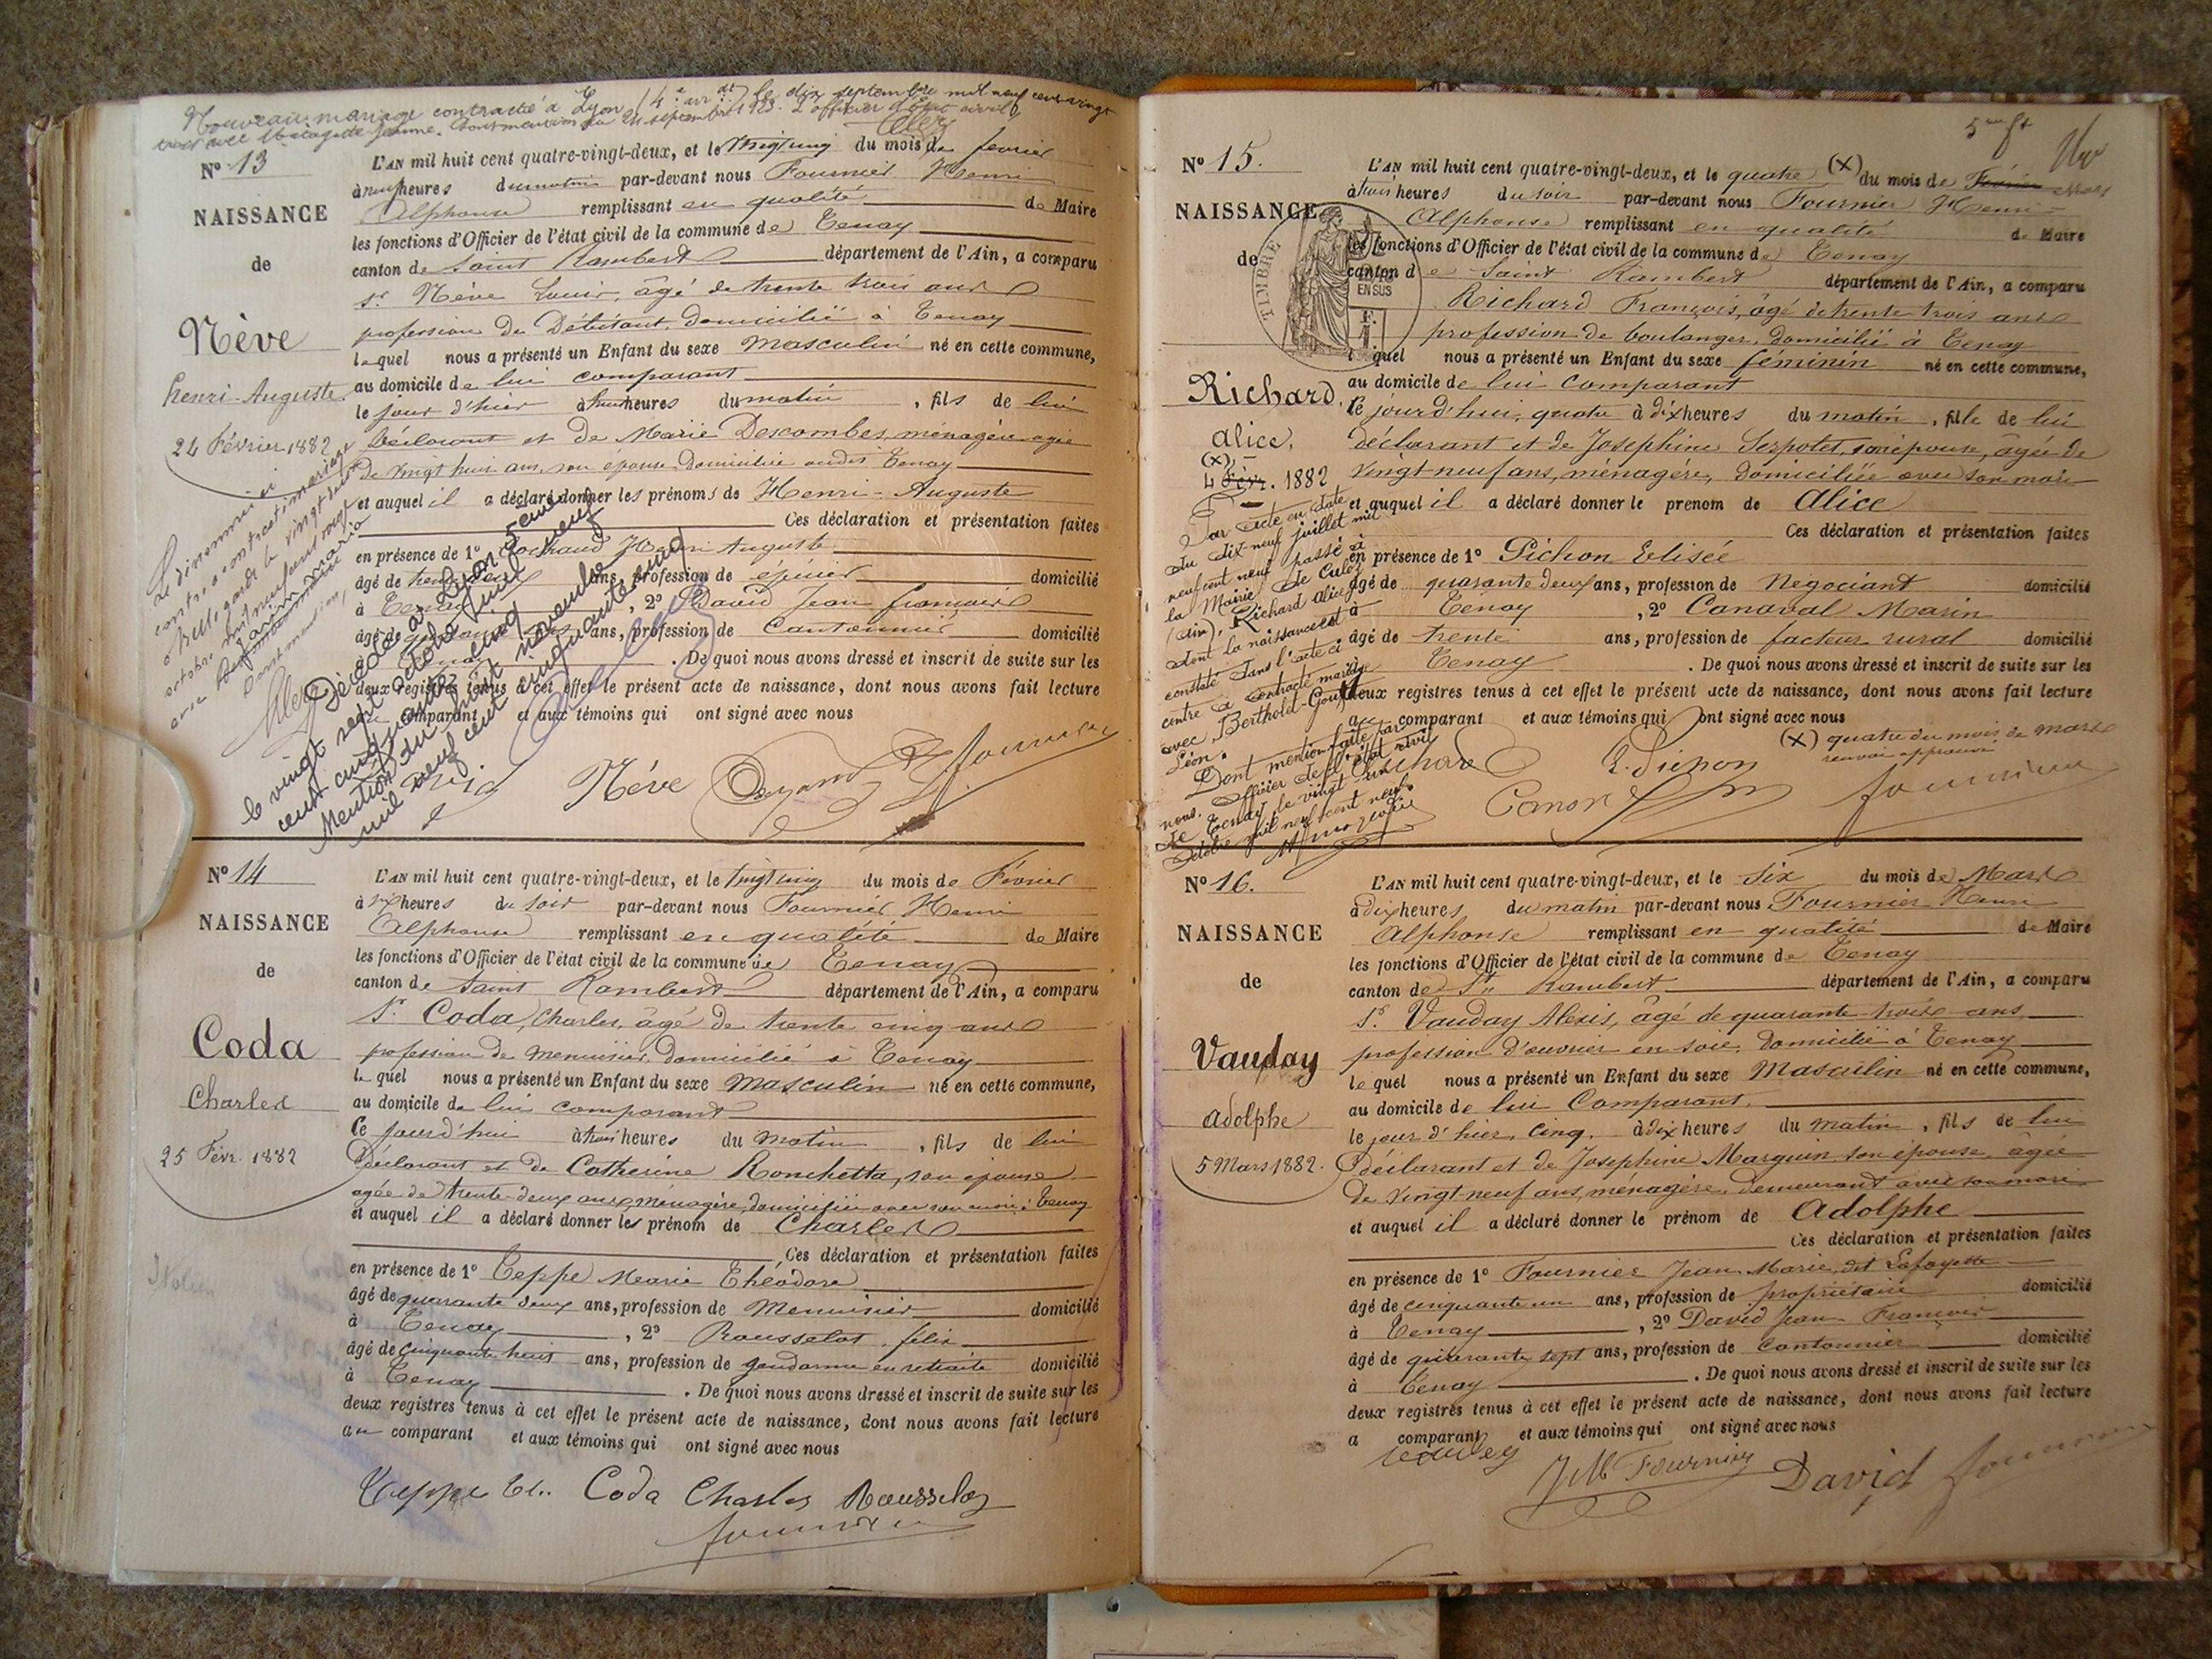 Nouveau mariage contracté à Lyon (4e arrdt) le dix septembre mil neuf cent vingt
trois avec Jeanne. Dont mention du 24 septembre 1923. L'officier d'état civil,
No 13
NAISSANCE
de
Nève
Henri-Auguste.
24 Février 1882
L'AN mil huit cent quatre-vingt-deux, et le vingt cinq du mois de février
à neuf heures du matin par-devant nous Fournier Henri
Alphonse remplissant en qualité de Maire
les fonctions d'Officier de l'état civil de la commune de Tenay
canton de Saint Rambert département de l'Ain, a comparu
sr Nève Louis, âgé de trente trois ans
profession de Débitant, domicilié à Tenay
lequel nous a présenté un Enfant du sexe masculin né en cette commune,
au domicile de lui comparant
le jour d'hier à heures du matin, fils de lui
déclarant et de Marie Descombes, ménagère agée
de vingt huit ans, son épouse, domiciliée audit Tenay
et auquel il a déclaré donner les prénoms de Henri-Auguste
Ces déclaration et présentation faites
en présence de 1o Henri Auguste
âgé de trente ans, profession de épicier domicilié
à Tenay, 2o David Jean François
âgé de ans, profession de Cantonnier domicilié
à Tenay. De quoi nous avons dressé et inscrit de suite sur les
deux registres tenus à cet effet le présent acte de naissance, dont nous avons fait lecture
comparant et aux témoins qui ont signé avec nous
Le dénommé ci
contre a contracté mariage
à Bellegarde le vingt deux
octobre mil neuf cent
avec Marie
Dont mention,
Décédé à Lyon 5ème
le vingt sept octobre mil neuf
cent cinquante cinq
Mention du huit novembre
mil neuf cent cinquante cinq
David Nève Fournier
No 14
NAISSANCE
de
Coda
Charles
25 Févr. 1882
L'AN mil huit cent quatre-vingt-deux, et le vingt cinq du mois de Février
à six heures du soir par-devant nous Fournier Henri
Alphonse remplissant en qualité de Maire
les fonctions d'Officier de l'état civil de la commune de Tenay
canton de Saint Rambert département de l'Ain, a comparu
sr Coda, Charles, âgé de trente cinq ans
profession de menuisier, domicilié à Tenay
lequel nous a présenté un Enfant du sexe masculin né en cette commune,
au domicile de lui comparant
Ce jourd'hui à trois heures du matin, fils de lui
déclarant et de Catherine Ronchetta, son épouse
agée de trente-deux ans, ménagère, domiciliée avec son mari à Tenay
et auquel il a déclaré donner les prénom de Charles
Ces déclaration et présentation faites
en présence de 1o Teppe Marie Théodore
âgé de quarante deux ans, profession de Menuisier domicilié
à Tenay, 2o Rousselot, félix
âgé de cinquante huit ans, profession de gendarme en retraite domicilié
à Tenay. De quoi nous avons dressé et inscrit de suite sur les
deux registres tenus à cet effet le présent acte de naissance, dont nous avons fait lecture
au comparant et aux témoins qui ont signé avec nous
Teppe Th. Coda Charles Rousselot
Fournier
No 15.
NAISSANCE
de
Richard,
Alice,
(x)
4 Févr. 1882
TIMBRE
EN SUS
L'AN mil huit cent quatre-vingt-deux, et le quatre (x) du mois de Février Mars
à trois heures du soir par-devant nous Fournier Henri
Alphonse remplissant en qualité de Maire
les fonctions d'Officier de l'état civil de la commune de Tenay
canton de Saint Rambert département de l'Ain, a comparu
Richard François, âgé de trente trois ans
profession de boulanger, domicilié à Tenay
lequel nous a présenté un Enfant du sexe féminin né en cette commune,
au domicile de lui comparant
Ce jourd'hui, quatre à dix heures du matin, fille de lui
déclarant et de Josephine Serpolet, son épouse, âgée de
vingt neuf ans, ménagère, domiciliée avec son mari
et auquel il a déclaré donner le prenom de Alice
Ces déclaration et présentation faites
en présence de 1o Pichon Elisée
âgé de quarante deux ans, profession de Négociant domicilié
à Tenay, 2o Canaval Marin
âgé de trente ans, profession de facteur rural domicilié
à Tenay. De quoi nous avons dressé et inscrit de suite sur les
deux registres tenus à cet effet le présent acte de naissance, dont nous avons fait lecture
au comparant et aux témoins qui ont signé avec nous
(x) quatre du mois de mars
renvoi approuvé
Par acte en date
du dix-neuf juillet mil
neuf cent neuf passé à
la Mairie de Culoz
(Ain), Richard Alice
dont la naissance est
constaté dans l'acte ci
contre a contracté mariage
avec Bertholet-
Léon.
Dont mention faite par
nous, officier de l'état civil
de Tenay le vingt un
octobre mil neuf cent neuf.
Richard E. Pichon
Fournier
No 16.
NAISSANCE
de
Vauday
Adolphe
5 Mars 1882.
L'AN mil huit cent quatre-vingt-deux, et le six du mois de Mars
à dix heures du matin par-devant nous Fournier Henri
Alphonse remplissant en qualité de Maire
les fonctions d'Officier de l'état civil de la commune de Tenay
canton de St Rambert département de l'Ain, a comparu
sr Vauday Alexis, âgé de quarante trois ans
profession d'ouvrier en soie, domicilié à Tenay
lequel nous a présenté un Enfant du sexe Masculin né en cette commune,
au domicile de lui Comparant.
le jour d'hier, cinq, à dix heures du matin, fils de lui
déclarant et de Josephine Marguin, son épouse, âgée
de vingt neuf ans, ménagère, demeurant avec son mari
et auquel il a déclaré donner le prénom de Adolphe
Ces déclaration et présentation faites
en présence de 1o Fournier Jean Marie, dit Lafayette
âgé de cinquante un ans, profession de propriétaire domicilié
à Tenay, 2o David Jean François
âgé de quarante sept ans, profession de Cantonnier domicilié
à Tenay. De quoi nous avons dressé et inscrit de suite sur les
deux registres tenus à cet effet le présent acte de naissance, dont nous avons fait lecture
a comparant et aux témoins qui ont signé avec nous
JM Fournier David Fournier